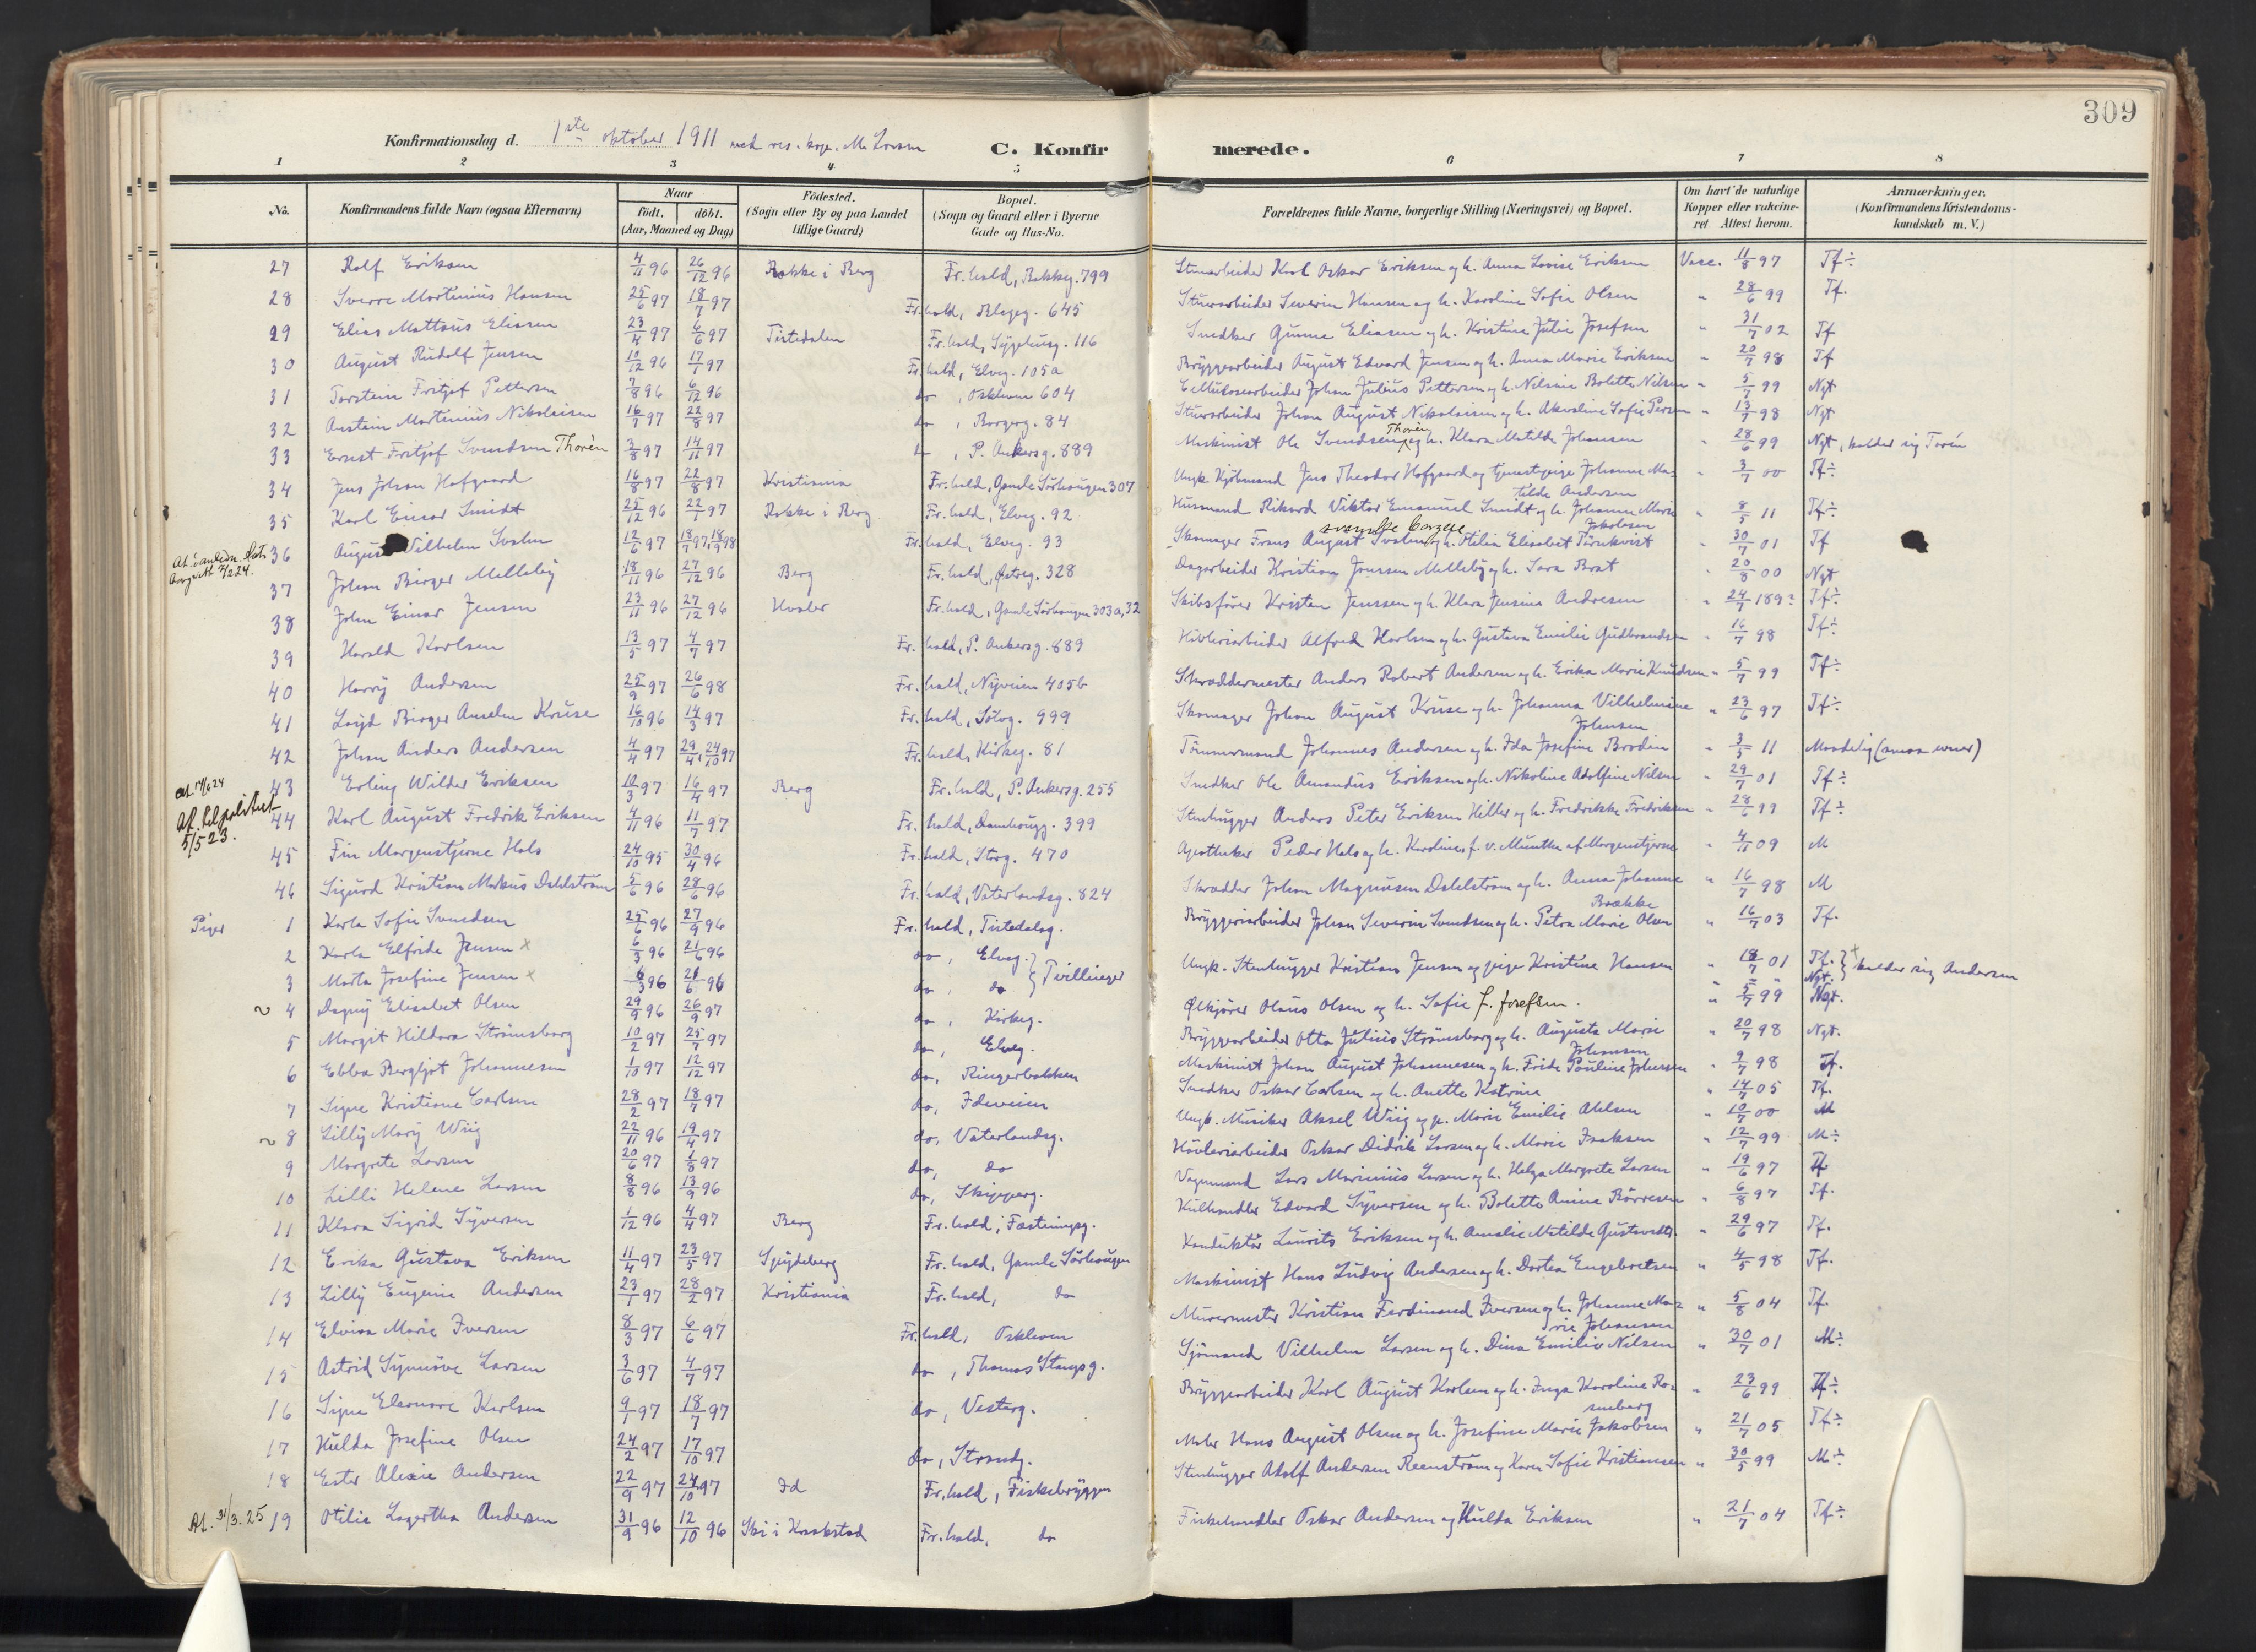 309
Konfirmationsdag d. 1ste oktober 1911 med res. kap. M. Larsen
C. Konfirmerede.
1 2 3 4 5 6 7 8
No.
Konfirmandens fulde Navn (ogsaa Efternavn)
Naar
födt. döbt.
(Aar, Maaned og Dag)
Födested.
(Sogn eller By og paa Landet tillige Gaard)
Bopæl.
(Sogn og Gaard eller i Byerne Gade og Hus-No.
Forældrenes fulde Navne, borgerlige Stilling (Næringsvei) og Bopæl.
Om havt de naturlige Kopper eller vakcineret. Attest herom.
Anmærkninger.
(Konfirmandens Kristendomskundskab m. V.)
27 Rolf Eriksen 4/11 96 26/12 96 Rokke i Berg Fr.hald, Bakkeg. 799 Stuearbeider Karl Oskar Eriksen og h. Anna Lovise Eriksen Vacc. 11/8 97 Tf÷
28 Sverre Martinius Hansen 25/6 97 18/7 97 Fr.hald, Blegeg. 645 Stuearbeider Severin Hansen og h. Karoline Sofie Olsen " 28/6 99 Tf.
29 Elias Mattæus Eliasen 23/4 97 6/6 97 Tistedalen Fr.hald, Sygehusg. 116 Snedker Gunne Eliasen og h. Kristine Julie Josefsen " 31/7 02 Tf
30 August Rudolf Jensen 10/12 96 17/1 97 Fr.hald, Elveg. 105a Bryggearbeider August Edvard Jensen og h. Anna Marie Eriksen " 20/7 98 Tf
31 Torstein Fritjof Pettersen 7/8 96 6/12 96 do, Oskleven 604 Cellulosearbeider Johan Julius Pettersen og h. Nilsine Bolette Nilsen " 5/7 99 Ngt
32 Arstein Martinius Nikolaisen 16/7 97 22/8 97 do, Borgerg. 84 Stuearbeider Johan August Nikolaisen og h. Akseline Sofie Persen " 13/7 98 Ngt
33 Ernst Fritjof Svendsen Thorèn 3/8 97 14/11 97 do, P. Ankersg. 889 Maskinist Ole Svendsen Thorèn og h. Klara Matilde Johansen " 28/6 99 Ngt, kalder sig Torén
34 Jens Johan Hofgaard 16/8 97 22/8 97 Kristiania Fr.hald, Gamle Sörhaugen 307 Ungk. Kjöbmand Jens Theodor Hofgaard og tjenestepige Johanne Matilde Andersen " 3/7 00 Tf÷
35 Karl Einar Smidt 25/12 96 22/1 97 Rokke i Berg Fr.hald, Elveg. 92 Husmand Rikard Viktor Emanuel Smidt og h. Johanne Marie Jakobsen " 8/5 11 Tf÷
36 August Vilhelm Svalen 12/6 97 18/7 97, 18/9 98 Fr.hald, Elveg. 93 Skomager Frans August Svalen svenske borgere og h. Otilia Elisabet Törnkvist " 30/7 01 Tf
37 Johan Birger Melleby 18/11 96 27/12 96 Berg Fr.hald, Østreg. 328 Dagarbeider Kristian Jonssen Melleby og h. Sara Brat " 20/8 00 Ngt
38 John Einar Jensen 23/11 96 27/12 96 Hvaler Fr.hald, Gamle Sörhaugen 303a, 32 Skibsförer Kristen Jenssen og h. Klara Jensine Andresen " 24/7 189? Tf÷
39 Harald Karlsen 13/5 97 4/7 97 Fr.hald, P. Ankersg. 889 Hövleriarbeider Alfred Karlsen og h. Gustava Emilie Gudbrandsen " 16/7 98 Tf÷
40 Harry Andersen 25/9 97 26/6 98 Fr.hald, Nyveien 405b Skræddermester Anders Robert Andersen og h. Erika Marie Knudsen " 5/7 99 Tf÷
41 Loyd Birger Anselm Kruse 16/10 96 14/3 97 Fr.hald, Sölvg. 999 Skomager Johan August Kruse og h. Johanna Vilhelmine Johnsen " 23/6 97 Tf÷
42 Johan Anders Andersen 4/4 97 29/4, 24/10 97 Fr.hald, Kirkeg. 81 Tömmermand Johannes Andersen og h. Ida Josefine Brodin " 3/5 11 Maadelig (smaa evner)
43 Erling Wilder Eriksen 10/3 97 16/4 97 Berg Fr.hald, P. Ankersg. 255 Snedker Ole Amandus Eriksen og h. Nikoline Adolfine Nilsen " 29/7 01 Tf÷
44 Karl August Fredrik Eriksen 4/11 96 11/7 97 Fr.hald, Damhaugg. 399 Stenhugger Anders Peter Eriksen Hiller og h. Fredrikke Fredriksen " 28/6 99 Tf÷
45 Fin Morgenstjerne Hals 24/10 95 30/4 96 Fr.hald, Storg. 470 Apotheker Peder Hals og h. Karoline f. v. Munthe af Morgenstjerne " 4/11 09 M
46 Sigurd Kristian Markus Dahlstrøm 5/6 96 28/6 96 Fr.hald, Vaterlandsg. 824 Skrædder Johan Magnusen Dahlstrøm og h. Anna Johanne Brække " 16/7 98 M
Piger 1 Karla Sofie Svendsen 25/6 96 27/9 96 Fr.hald, Tistedalsg. Bryggeriarbeider Johan Severin Svendsen og h. Petra Marie Olsen " 16/7 03 Tf.
2 Karla Elfride Jensen x 6/3 96 21/6 96 do, Elveg. } Tvillinger Ungk. Stenhugger Kristian Jensen og pige Kristine Hansen " 18/7 01 Tf. } x kalder sig Andersen
3 Marta Josefine Jensen x 6/3 96 21/6 96 do, do " " Ngt.
4 Dagny Elisabet Olsen 29/9 96 26/9 97 do, Kirkeg. Ølkjører Olaus Olsen og h. Sofie f. Josefsen. " 5/7 99 Ngt.
5 Margit Hildora Strömsborg 10/2 97 25/7 97 do, Elveg. Bryggearbeider Otto Julius Strömsborg og h. Augusta Marie Johansen " 20/7 98 Ngt.
6 Ebba Bergljot Johannesen 1/10 97 12/12 97 do, Ringerbakken Maskinist Johan August Johannesen og h. Frida Pauline Johansen " 9/7 98 Tf.
7 Signe Kristiane Carlsen 28/2 97 18/7 97 do, Ideveien Snedker Oskar Carlsen og h. Anette Katrine " 14/7 05 Tf.
8 Lilly Mary Wiig 22/11 96 19/4 97 do, Vaterlandsg. Ungk. Musiker Aksel Wiig og p. Marie Emilie Ahlsen " 10/7 00 M
9 Margrete Larsen 20/6 97 1/8 97 do, do Hövleriarbeider Oskar Didrik Larsen og h. Marie Isaksen " 12/7 99 M÷
10 Lilli Helene Larsen 8/8 96 13/9 96 do, Skipperg. Vognmand Lars Marinius Larsen og h. Helga Margrete Larsen " 19/6 97 Tf
11 Klara Sigrid Syversen 1/12 96 4/4 97 Berg Fr.hald, Fæstningsg. Kulhandler Edvard Syversen og h. Bolette Amine Börresen " 6/8 97 Tf.
12 Erika Gustava Eriksen 11/4 97 23/5 97 Spydeberg Fr.hald, Gamle Sörhaugen Konduktör Laurits Eriksen og h. Amalie Matilde Gustavsdt. " 29/6 97 Tf.
13 Lilly Eugenie Andersen 23/1 97 28/2 97 Kristiania Fr.hald, do Maskinist Hans Ludvig Andersen og h. Dortea Engebretsen " 4/5 98 Tf.
14 Elvira Marie Iversen 8/3 97 6/6 97 Fr.hald, Oskleven Murermester Kristian Ferdinand Iversen og h. Johanne Marie Johansen " 5/8 04 Tf.
15 Astrid Synnöve Larsen 3/6 97 4/7 97 do, Thomas Stangsg. Sjömand Vilhelm Larsen og h. Dina Emilie Nilsen " 30/7 01 M÷
16 Signe Eleonore Karlsen 9/1 97 18/7 97 do, Vesterg. Bryggearbeider Karl August Karlsen og h. Inga Karoline Rosenberg " 23/6 99 Tf÷
17 Hulda Josefine Olsen 24/2 97 17/10 97 do, Strandg. Maler Hans August Olsen og h. Josefine Marie Jakobsen " 21/7 05 Tf÷
18 Ester Alexie Andersen 22/9 97 24/10 97 Id Fr.hald, Fiskebryggen Stenhugger Adolf Andersen Reenström og Karen Sofie Kristiansen " 30/5 99 M÷
At. 31/3.25 19 Otilie Lagertha Andersen 31/9 96 12/10 96 Ski i Kraakstad Fr.hald, do Fiskehandler Oskar Andersen og Hulda Eriksen " 21/7 04 Tf÷
At. 14/6 24
5/5 23.